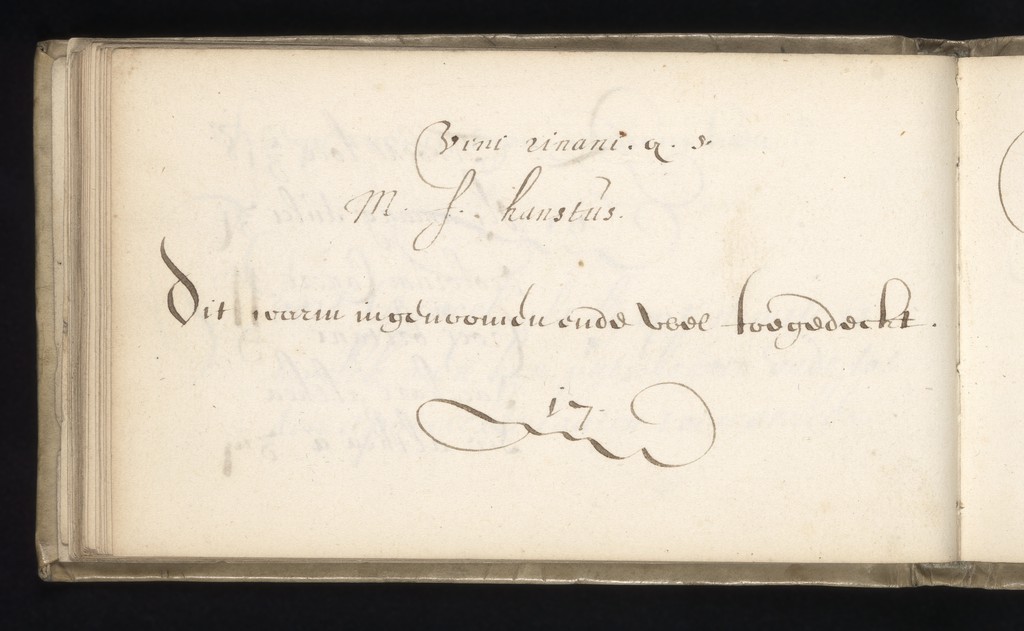 Vini rinani. q. s.
M. f. haustus.
Dit warm ingenoomen ende wel toegedeckt.
17.